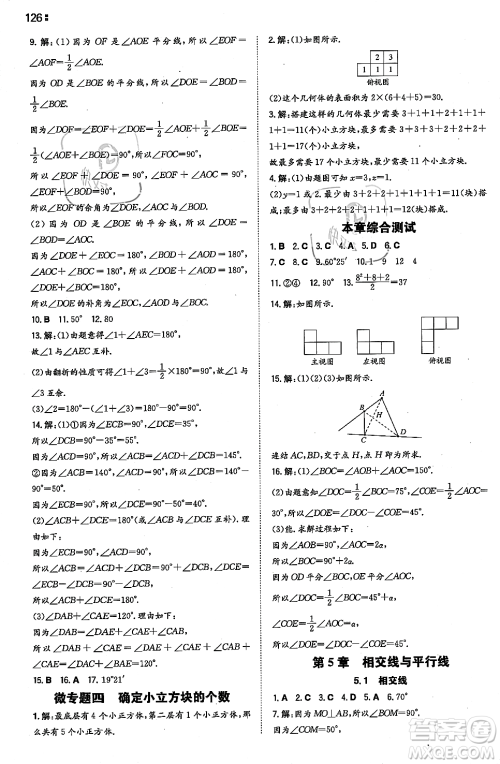 126
9. 解:(1)因为 OF 是∠AOE 平分线,所以∠EOF=∠AOF=
1/2∠AOE.
因为 OD 是∠BOE 平分线,所以∠EOD=∠BOD=
1/2∠BOE.
所以∠DOF=∠EOF+∠EOD=1/2∠AOE+
1/2∠BOE=90°,
所以∠AOF+∠BOD=90°,
所以∠DOE+∠EOF=90°.
(2)因为 OD 是∠BOE 平分线,所以∠DOE=∠BOD=
∠AOC.
因为∠DOE+∠EOC=180°,∠BOD+∠EOC=180°,
∠AOC+∠EOC=180°,
所以∠DOE 的补角为∠EOC,∠AOD,∠BOC.
10. B 11. 50° 12. 80
13. 解:(1)由题意得∠1+∠AEC=180°.
故∠1与∠AEC 互补.
(2)由翻折的性质可得∠1+∠3=1/2×180°=90°,故∠1与
∠3 互余.
(3)∠2=180°-30°-15°=135°.
14. 解:(1)①因为∠DCB=90°-∠DCE=90°-35°=55°,
所以∠ACB=∠DCA+∠DCB=90°+55°=145°.
②因为∠ACB=140°,
所以∠DCB=∠ACB-∠ACD=140°-90°=50°,
所以∠DCE=∠BCE-∠DCB=90°-50°=40°.
(2)∠ACB+∠DCE=180°或∠ACB与∠DCE互补.理由
如下:
因为∠BCE=90°,
所以∠ACB+∠DCE=∠ACD+∠DCB+∠DCE=90°+
90°=180°.
(3)∠DAB+∠CAE=120°,理由如下:
所以∠DAB=∠DAE+∠CAE+∠CAB,
所以∠DAB+∠CAE=∠DAE+∠CAE+∠CAB+∠CAE=
∠DAC+∠EAB=120°.
15. B 16. A 17. 19°21′
微专题四 确定小立方块的个数
1. 解:最底层有 4 个小正方体,第二层有 1 个小正方体,所以
共有 5 个小正方体.
2. 解:(1)如图所示.
2 3
1 1 1
俯视图
(2)这个几何体的表面积为 2×(6+4+5)=30.
3. 解:搭建这个几何体最少需要 3+1+1+2+1+1+
1=10(个)小立方块,最多需要 3+3+1+2+2+2+
1+1+1=16(个)小立方块.
故最少需要 10 个小立方块,最多需要 16 个小立方块.
4. 解:(1)由题图可知 x=3,z=1.
(2)y=1 或 2.最少由 3+2+2+1+1+1+1=11(块)搭成;
最多由 3+2+2+2+1+1+1=12(块)搭成.
本章综合测试
1. B 2. C 3. C 4. A 5. D 6. C
7. C 8. C 9. 60°25′ 10. 1 9 12 4
11. ②④ 12. 90° 13. (8²+8+2)/2=37
14. 解:如图所示.
主视图 左视图 俯视图
15. 解:(1)(2)(3)如图所示.
A
B H
C D
连结 AC,BD,交于点 H,点 H 即为所求.
16. 解:(1)∠BOC=∠AOC ∠BOE=∠COE
(2)由题意知,∠BOC=∠DOC=1/2∠AOC=1/2×60°=
30°,所以∠COE=45°.
(3)能. 求解过程如下:
因为∠AOB=90°,∠AOC=2α,
所以∠BOC=90°-2α.
因为 OD,OE 平分∠AOC,∠BOC,
所以∠DOC=1/2∠AOC=α,∠COE=1/2∠BOC=
45°-α.
所以∠DOE=∠DOC+∠COE=45°.
第 5 章 相交线与平行线
5.1 相交线
1. A 2. A 3. A 4. D 5. A 6. 70°
7. 解:因为 MO⊥AB,所以∠AOM=∠BOM=90°,
所以∠COM+∠AOC=90°,